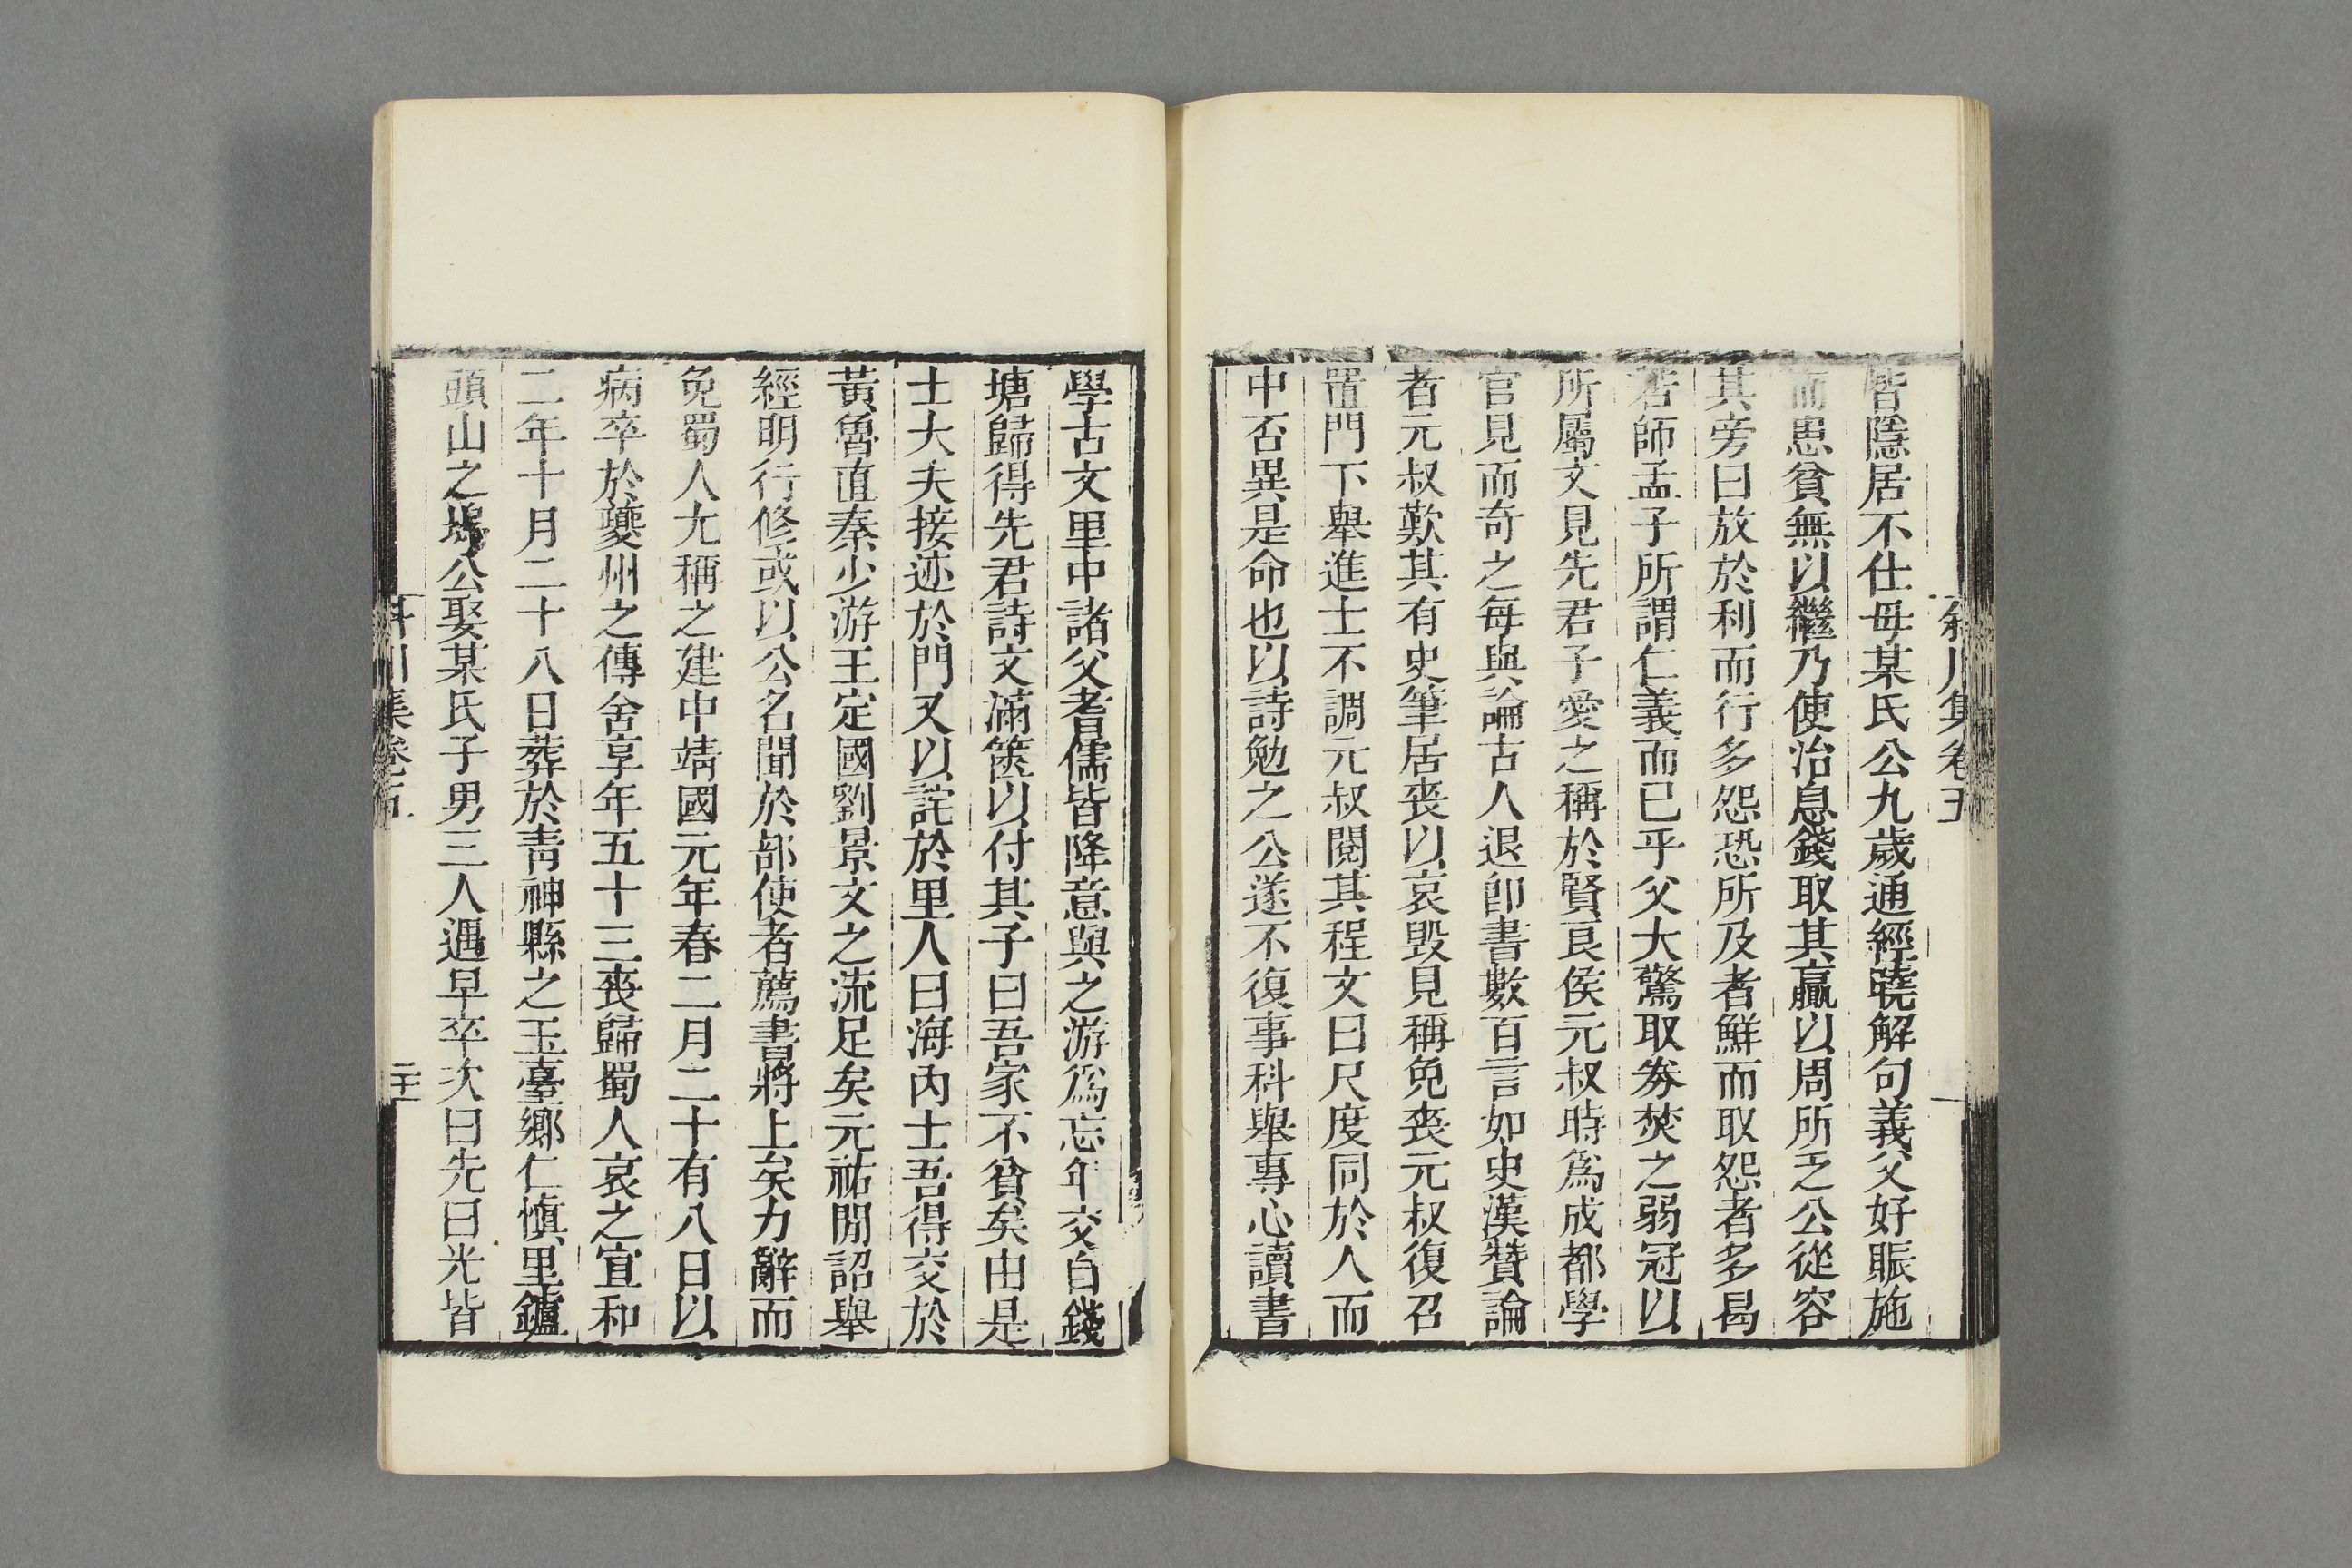 皆隱居不仕毋某氏公九歲通經曉解句義父好賑施
而患貧無以繼乃使治息錢取其贏以周所乏公從容
其旁曰放於利而行多怨恐所及者鮮而取怨者多曷
若師孟子所謂仁義而已乎父大驚取劵焚之弱冠以
所屬文見先君子愛之稱於賢良侯元叔時爲成都學
官見而奇之每與論古人退卽書數百言如史漢贊論
者元叔歎其有史筆居喪以哀毀見稱免喪元叔復召
置門下舉進士不調元叔閱其程文曰尺度同於人而
中否異是命也以詩勉之公遂不復事科舉專心讀書
學古文里中諸父耆儒皆降意與之游爲忘年交自錢
塘歸得先君詩文滿篋以付其子曰吾家不貧矣由是
士大夫接迹於門又以詫於里人曰海內士吾得交於
黃魯直秦少游王定國劉景文之流足矣元祐閒詔舉
經明行修或以公名聞於部使者薦書將上矣力辭而
免蜀人尤稱之建中靖國元年春二月二十有八日以
病卒於夔州之傳舍享年五十三喪歸蜀人哀之宣和
二年十月二十八日葬於靑神縣之玉臺鄉仁愼里鑪
頭山之塢公娶某氏子男三人遇早卒次曰先曰光皆
斜川集卷五